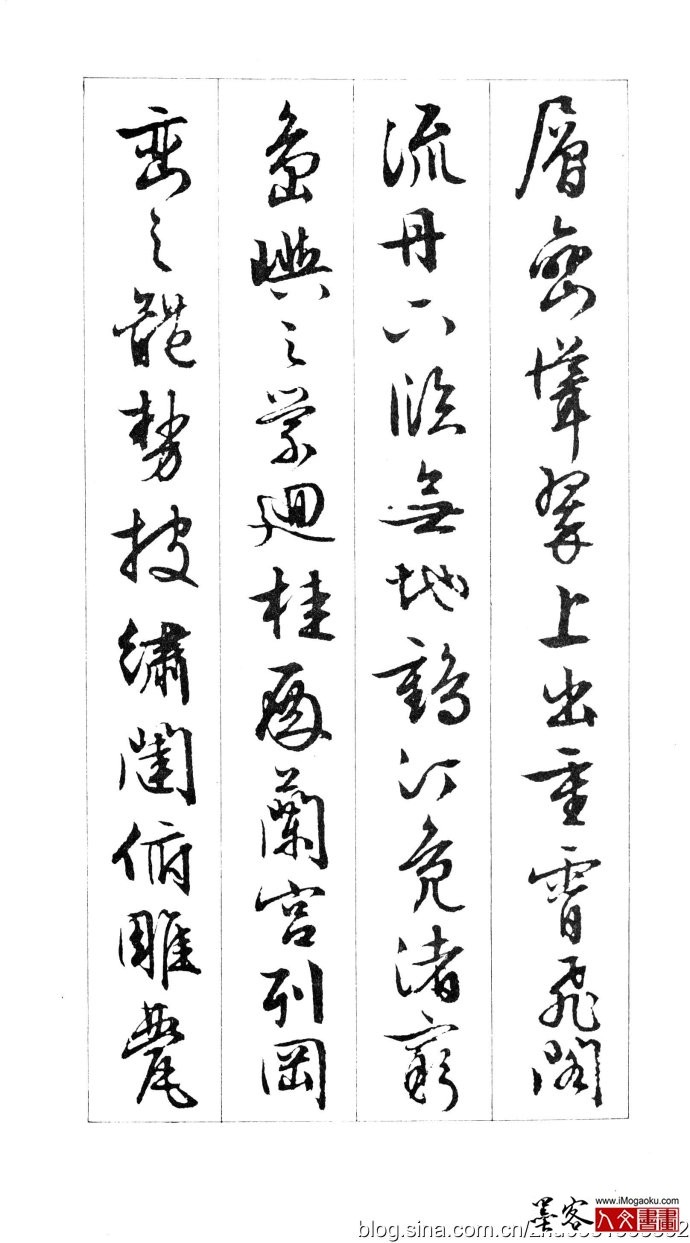 層巒聳翠上出重霄飛閣
流丹下臨無地鶴汀鳧渚窮
島嶼之縈迴桂殿蘭宮列岡
巒之體勢披繡闥俯雕甍
墨客
www.iMogaoku.com
人文書畫